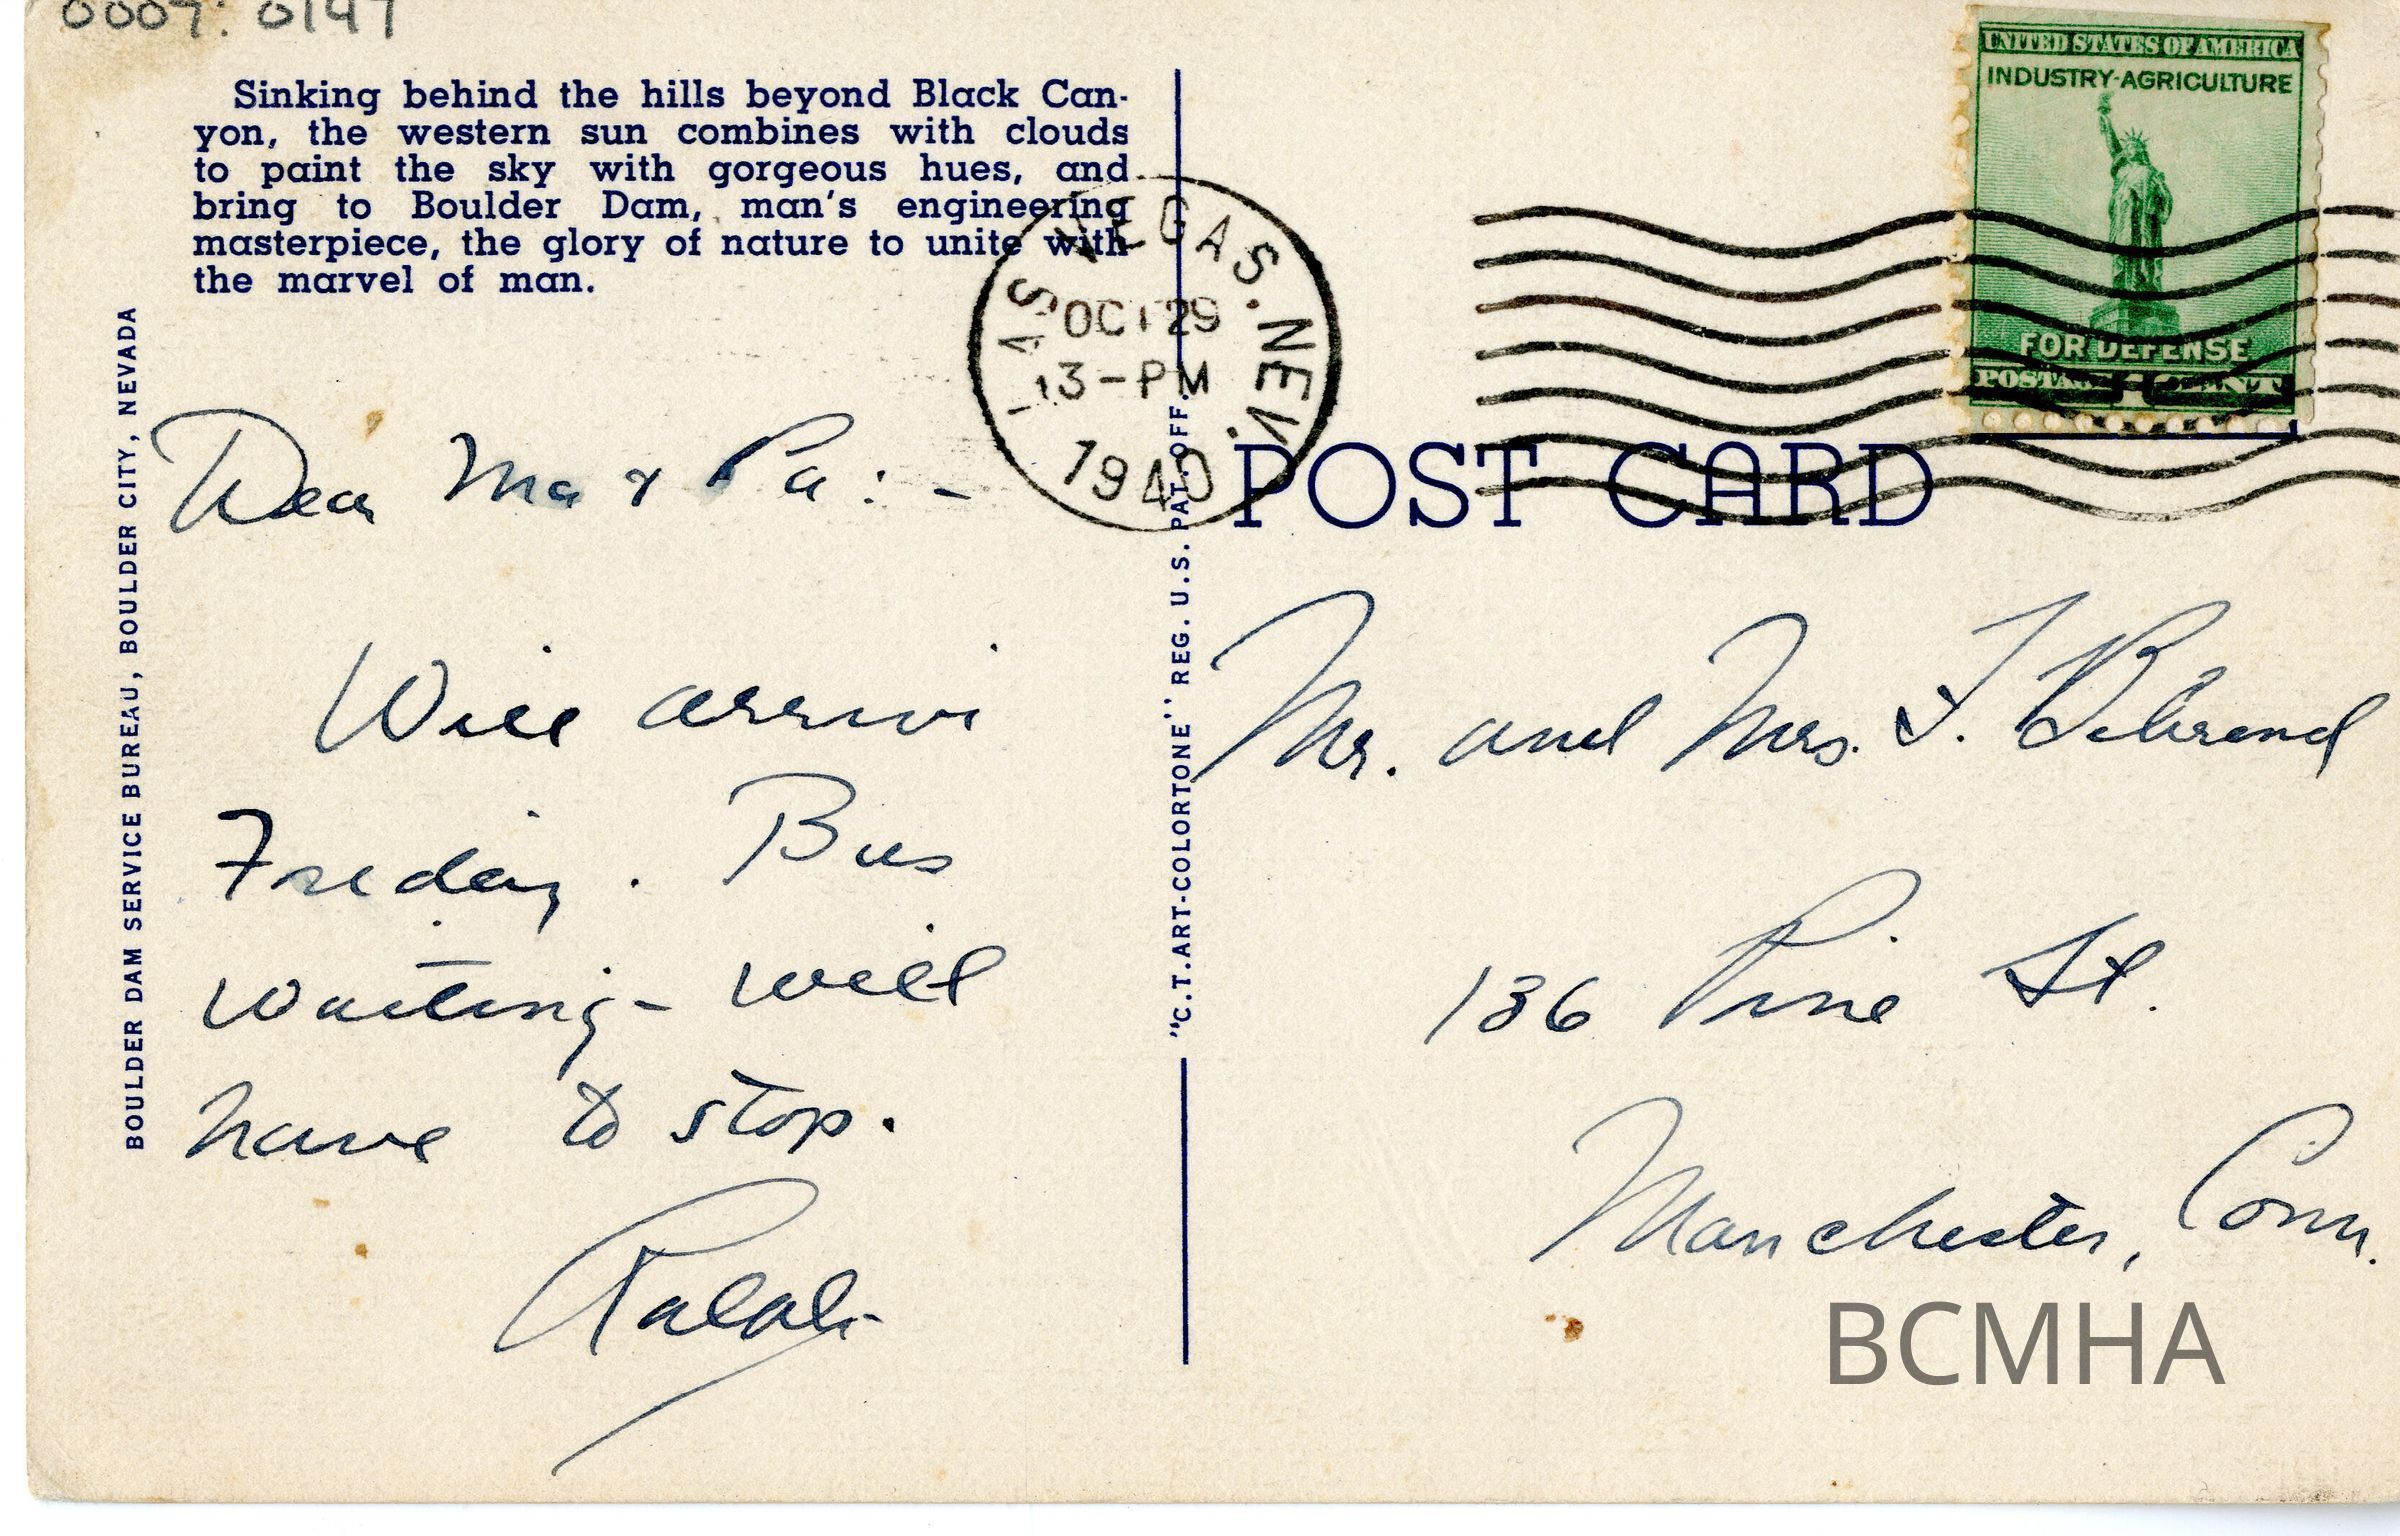 0009: 0147
Sinking behind the hills beyond Black Can-
yon, the western sun combines with clouds
to paint the sky with gorgeous hues, and
bring to Boulder Dam, man's engineering
masterpiece, the glory of nature to unite with
the marvel of man.
BOULDER DAM SERVICE BUREAU, BOULDER CITY, NEVADA
Dear Ma & Pa: -
Will arrive
Friday. Bus
waiting - will
have to stop.
Ralph
"C.T. ART-COLORTONE" REG. U.S. PAT. OFF.
LAS VEGAS. NEV.
OCT 29
3-PM
1940
UNITED STATES OF AMERICA
INDUSTRY-AGRICULTURE
FOR DEFENSE
POSTAGE 1 CENT
POST CARD
Mr. and Mrs. F. Behrend
136 Pine St.
Manchester, Conn.
BCMHA